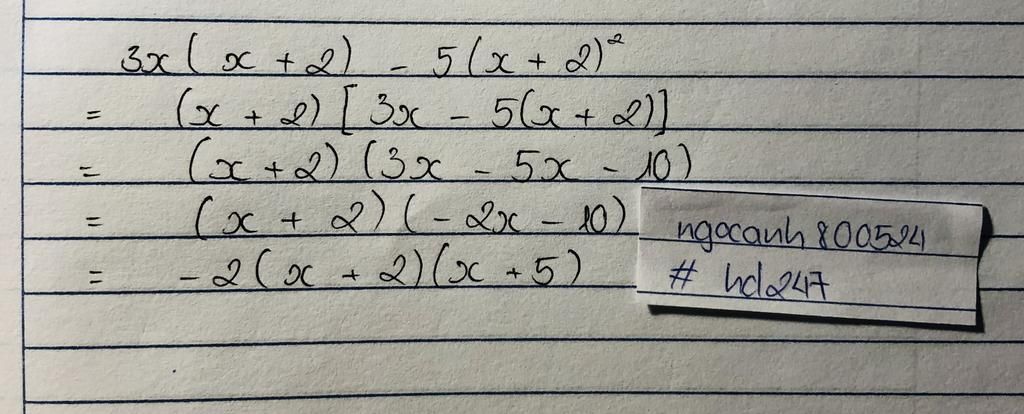 3x(x+2) - 5(x+2)²
= (x+2)[3x - 5(x+2)]
= (x+2)(3x - 5x - 10)
= (x+2)(-2x - 10)
= -2(x+2)(x+5)
ngocanh800524
# hd247